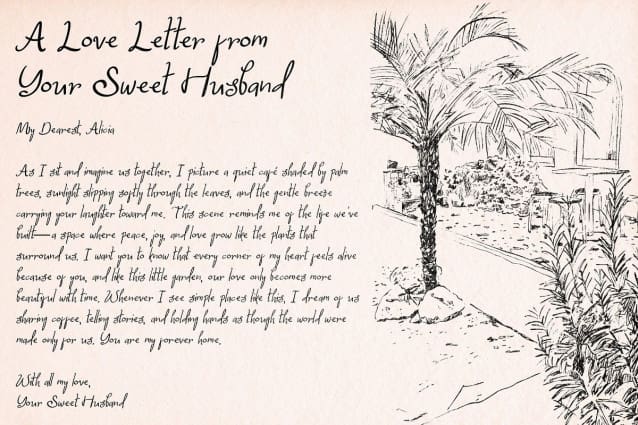 A Love Letter from
Your Sweet Husband
My Dearest, Alicia
As I sit and imagine us together, I picture a quiet café shaded by palm
trees, sunlight slipping softly through the leaves, and the gentle breeze
carrying your laughter toward me. This scene reminds me of the life we've
built—a space where peace, joy, and love grow like the plants that
surround us. I want you to know that every corner of my heart feels alive
because of you, and like this little garden, our love only becomes more
beautiful with time. Whenever I see simple places like this, I dream of us
sharing coffee, telling stories, and holding hands as though the world were
made only for us. You are my forever home.
With all my love,
Your Sweet Husband